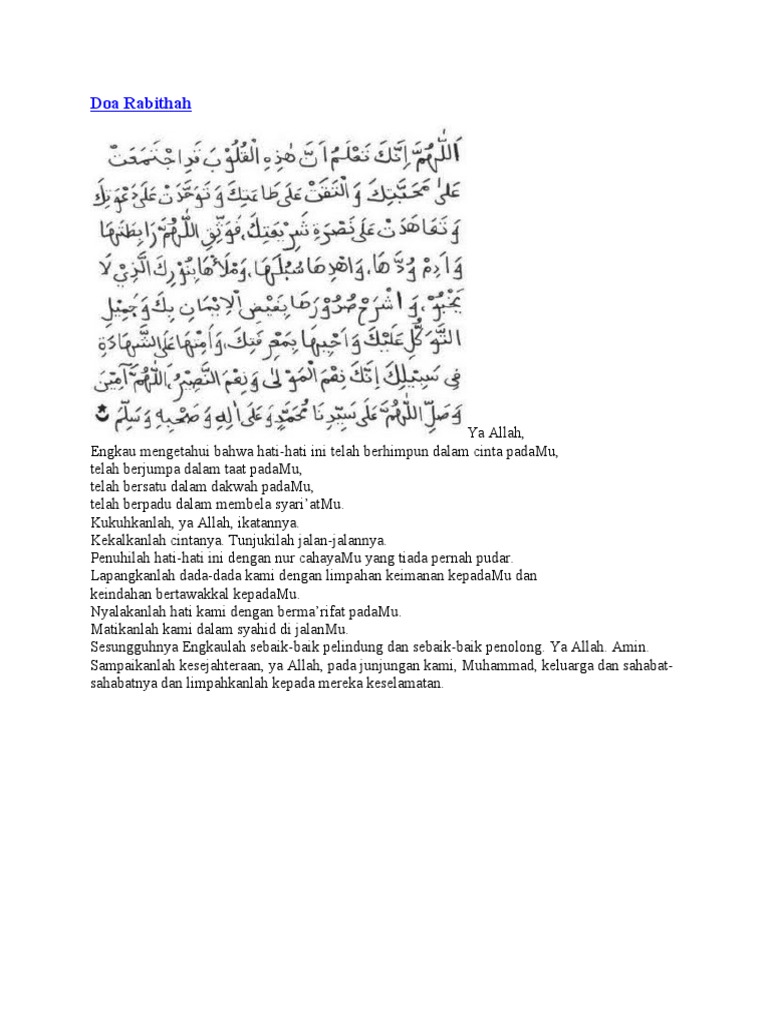 Doa Rabithah
اَللّٰهُمَّ اِنَّكَ تَعْلَمُ اَنَّ هٰذِهِ الْقُلُوْبَ قَدِ اجْتَمَعَتْ
عَلىٰ مَحَبَّتِكَ وَالْتَقَتْ عَلىٰ طَاعَتِكَ وَتَوَحَّدَتْ عَلىٰ دَعْوَتِكَ
وَتَعَاهَدَتْ عَلىٰ نَصْرَةِ شَرِيْعَتِكَ، فَوَثِّقِ اللّٰهُمَّ رَابِطَتَهَا
وَاَدِمْ وُدَّهَا، وَاهْدِهَا سُبُلَهَا، وَمْلَأْهَا بِنُوْرِكَ الَّذِيْ لَا
يَخْبُوْ، وَاشْرَحْ صُدُوْرَهَا بِفَيْضِ الْاِيْمَانِ بِكَ وَجَمِيْلِ
التَّوَكُّلِ عَلَيْكَ وَاَحْيِهَا بِمَعْرِفَتِكَ، وَاَمِتْهَا عَلَى الشَّهَادَةِ
فِيْ سَبِيْلِكَ اِنَّكَ نِعْمَ الْمَوْلىٰ وَنِعْمَ النَّصِيْرُ، اَللّٰهُمَّ آمِيْنَ
وَصَلِّ اللّٰهُمَّ عَلىٰ سَيِّدِنَا مُحَمَّدٍ وَعَلىٰ اٰلِهِ وَصَحْبِهِ وَسَلِّمْ
Ya Allah,
Engkau mengetahui bahwa hati-hati ini telah berhimpun dalam cinta padaMu,
telah berjumpa dalam taat padaMu,
telah bersatu dalam dakwah padaMu,
telah berpadu dalam membela syari’atMu.
Kukuhkanlah, ya Allah, ikatannya.
Kekalkanlah cintanya. Tunjukilah jalan-jalannya.
Penuhilah hati-hati ini dengan nur cahayaMu yang tiada pernah pudar.
Lapangkanlah dada-dada kami dengan limpahan keimanan kepadaMu dan
keindahan bertawakkal kepadaMu.
Nyalakanlah hati kami dengan berma’rifat padaMu.
Matikanlah kami dalam syahid di jalanMu.
Sesungguhnya Engkaulah sebaik-baik pelindung dan sebaik-baik penolong. Ya Allah. Amin.
Sampaikanlah kesejahteraan, ya Allah, pada junjungan kami, Muhammad, keluarga dan sahabat-
sahabatnya dan limpahkanlah kepada mereka keselamatan.